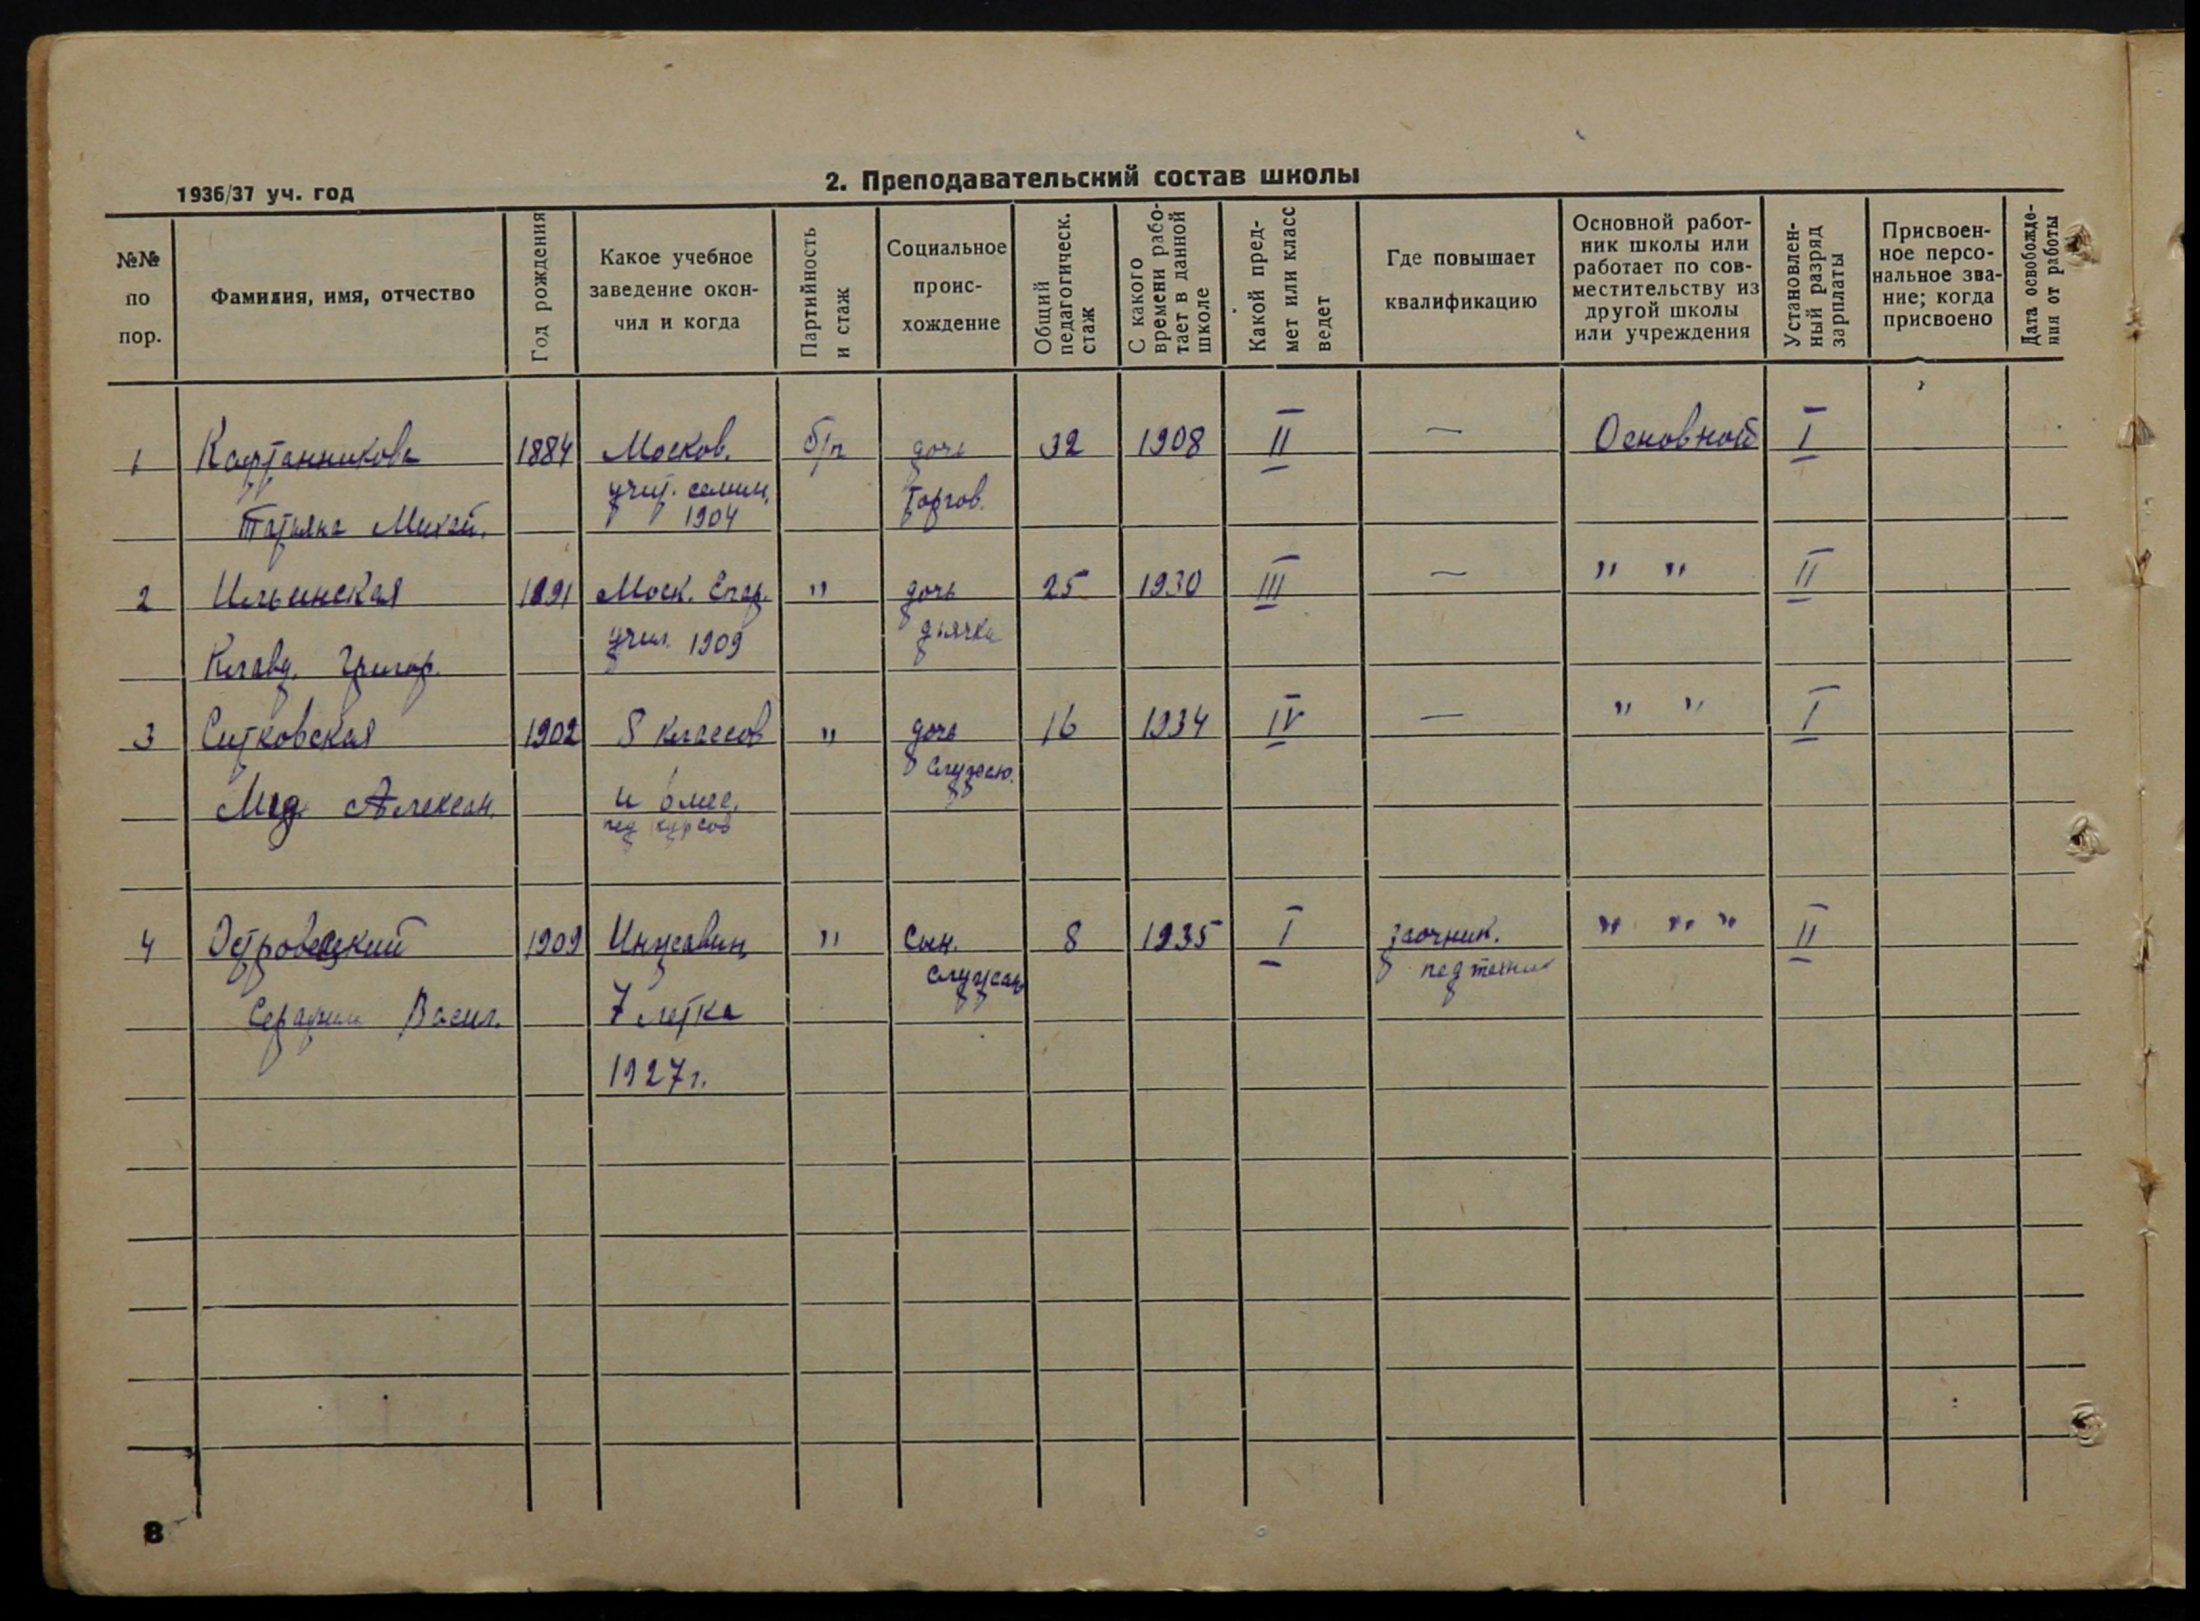 1936/37 уч. год
2. Преподавательский состав школы
№№ по пор.
Фамилия, имя, отчество
Год рождения
Какое учебное заведение окончил и когда
Партийность и стаж
Социальное происхождение
Общий педагогическ. стаж
С какого времени работает в данной школе
Какой предмет или класс ведет
Где повышает квалификацию
Основной работник школы или работает по совместительству из другой школы или учреждения
Установленный разряд зарплаты
Присвоенное персональное звание; когда присвоено
Дата освобождения от работы
1 Кафтанникова 1884 Москов. б/п дочь 32 1908 II — Основной I
учит. семин. торгов.
1904
Татьяна Михай.
2 Ильинская 1891 Моск. Епар. " дочь 25 1930 III — " " II
учил. 1909 дьячка
Клавд. Григор.
3 Ситковская 1902 8 классов " дочь 16 1934 IV — " " I
служ.
Лид. Алексан. и 6 мес.
пед курсов
4 Островецкий 1909 Инжавин " Сын. 8 1935 I заочник. " " " II
служащ педтехник
Серафим Васил. 7 летка
1927 г.
8